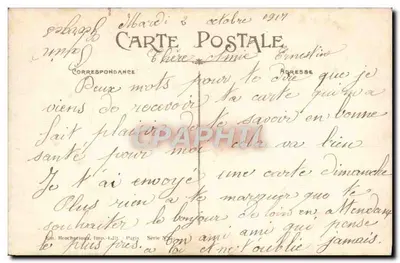 Mardi 2 octobre 1917
CARTE POSTALE
Chère Amie Ernestine
CORRESPONDANCE
ADRESSE
Deux mots pour te dire que je
viens de recevoir ta carte qui m'a
fait plaisir de te savoir en bonne
santé pour moi cela va bien
Je t'ai envoyé une carte dimanche
Plus rien a te marquer que te
souhaiter le bonjour de loin en attendant
le plus près Ton ami ami que pense
a toi et ne t'oublie jamais.
CPAPHIL